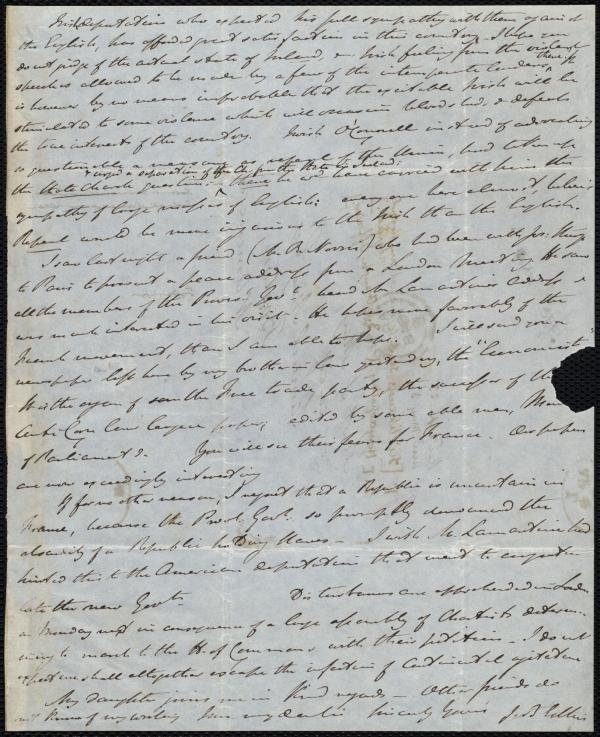 Irish deputation who expected his full sympathy with them against
the English, has afforded great satisfaction in this country. I hope you
do not judge of the actual state of Ireland, or Irish feeling from the violent
speeches allowed to be made by a few of the intemperate leaders, there, it
is however by no means improbable that the excitable Irish will be
stimulated to some violence which will occasion bloodshed, & defeat
the true interests of the country. I wish O'Connell instead of advocating
so questionable a measure as repeal of the Union had taken up
& urged a separation of the Ch. from the State in Ireland
the State Church question; there he wd have carried with him the
sympathy of large masses of English: every one here almost believes
Repeal would be more injurious to the Irish than the English.
I saw last night a friend (Mr. R. Norris) who had been with Jos. Sturge
to Paris to present a peace address from a London Meeting. He saw
all the members of the Provl. Govt. heard M. Lamartine's address &
was much interested in his visit. He hopes more favorably of the
French movement, than I am able to hope. I will send you a
newspaper left here by my brother in law yesterday, the "Economist"
It is the organ of the Free trade party, the successor of the
Anti Corn Law League paper, edited by some able men, Mem
of Parliament &c. You will see their fears for France. Our papers
are now exceedingly interesting
If for no other reason, I regret that a Republic is uncertain in
France, because the Provl. Govt. so promptly denounced the
absurdity of a Republic holding slaves - I wish M. Lamartine had
hinted this to the American deputation that went to congratu-
late the new Govt. Disturbances are apprehended in London
on Monday next in consequence of a large assembly of Chartists determ-
ining to march to the H. of Commons with their petition. I do not
expect we shall altogether escape the infection of continental agitation
My daughter joins me in kind regards - Other friends do
not know of my writing
sincerely yours